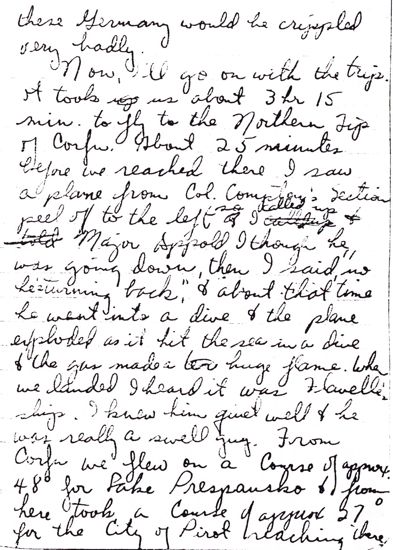 these Germany would be crippled
very badly.
Now, I'll go on with the trip.
It took us about 3 hr 15
min. to fly to the Northern Tip
of Corfu. About 25 minutes
before we reached there I saw
a plane from Col. Compton's Section
peel of to the left so I called up &
told Major Appold I though he
was going down, then I said, "no
he's turning back," & about that time
he went into a dive & the plane
exploded as it hit the sea in a dive
& the gas made a huge flame. When
we landed I heard it was Flavelle's
ship. I knew him quiet well & he
was really a swell guy. From
Corfu we flew on a Course of approx.
48° for Lake Prespansko & from
here took a Course of approx 27°
for the City of Pirot reaching there